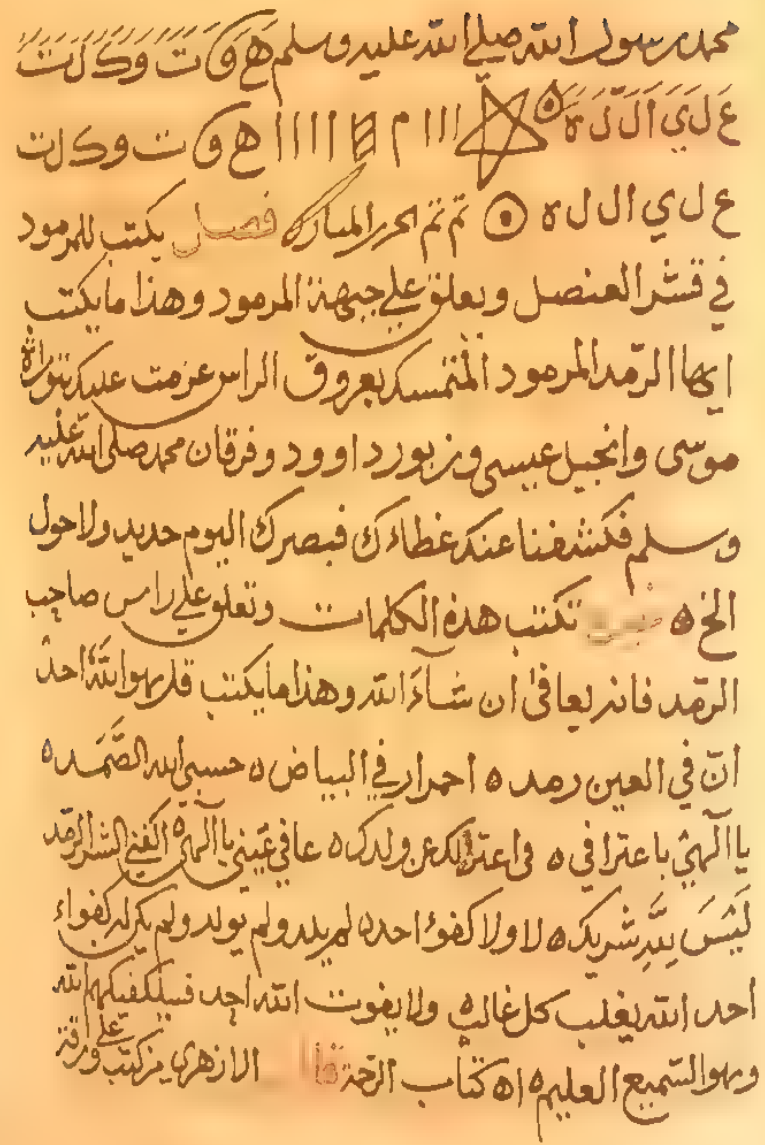 محمد رسول الله صلي الله عليه وسلم ه ق ت و ك ل ت
ع ل ي ا ل ل ه ااا م ااااا ه ق ت و ك ل ت
ع ل ي ا ل ل ه تم تم الحرز المبارك فصل يكتب للمرمود
في قشر العنصل ويعلق علي جبهة المرمود وهذا ما يكتب
ايها الرمد المرمود المتمسك بعروق الراس عزمت عليك بتوراة
موسى وانجيل عيسى وزبور داوود وفرقان محمد صلى الله عليه
وسلم فكشفنا عنك غطاءك فبصرك اليوم حديد ولا حول
الخ ه تكتب هذه الكلمات وتعلق علي راس صاحب
الرمد فانه يعافى ان شآء الله وهذا ما يكتب قل هو الله احد
انّ في العين رمد ه احمرار في البياض ه حسبي الله الصَّمَد ه
يا الهي باعترافي ه عن ولدك ه عافي عيني يا الهي ه اكفني الشر الرمد
لَيْسَ لِلَّهِ شريك ه لا ولا كفؤ احد ه لم يلد ولم يولد ولم يكن له كفواء
احد الله يغلب كل غالب ولا يفوت الله احد فسيكفيكهم الله
وهو السّميع العليم ه اه كتاب الرحمة الازهري من كتب على ورقة